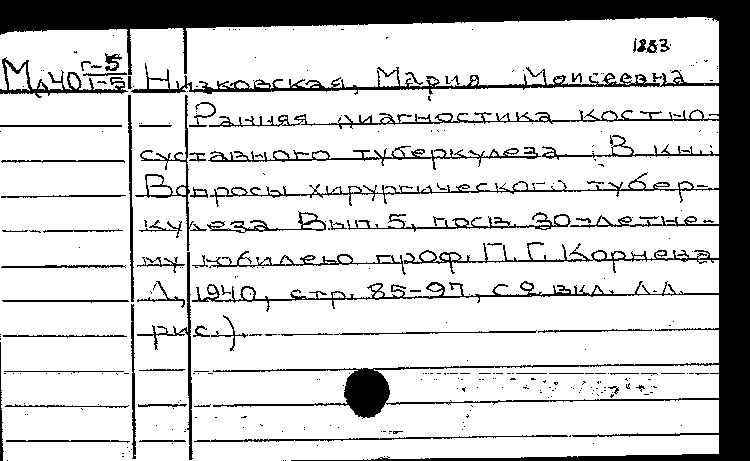 1883
Мл40 Г-5/1-5 Низковская, Мария Моисеевна
Ранняя диагностика костно-
суставного туберкулеза (В кн.:
Вопросы хирургического тубер-
кулеза. Вып. 5, посв. 30-летне-
му юбилею проф. П. Г. Корнева
Л., 1940, стр. 85-97, с 2 вкл. л.л.
рис.).